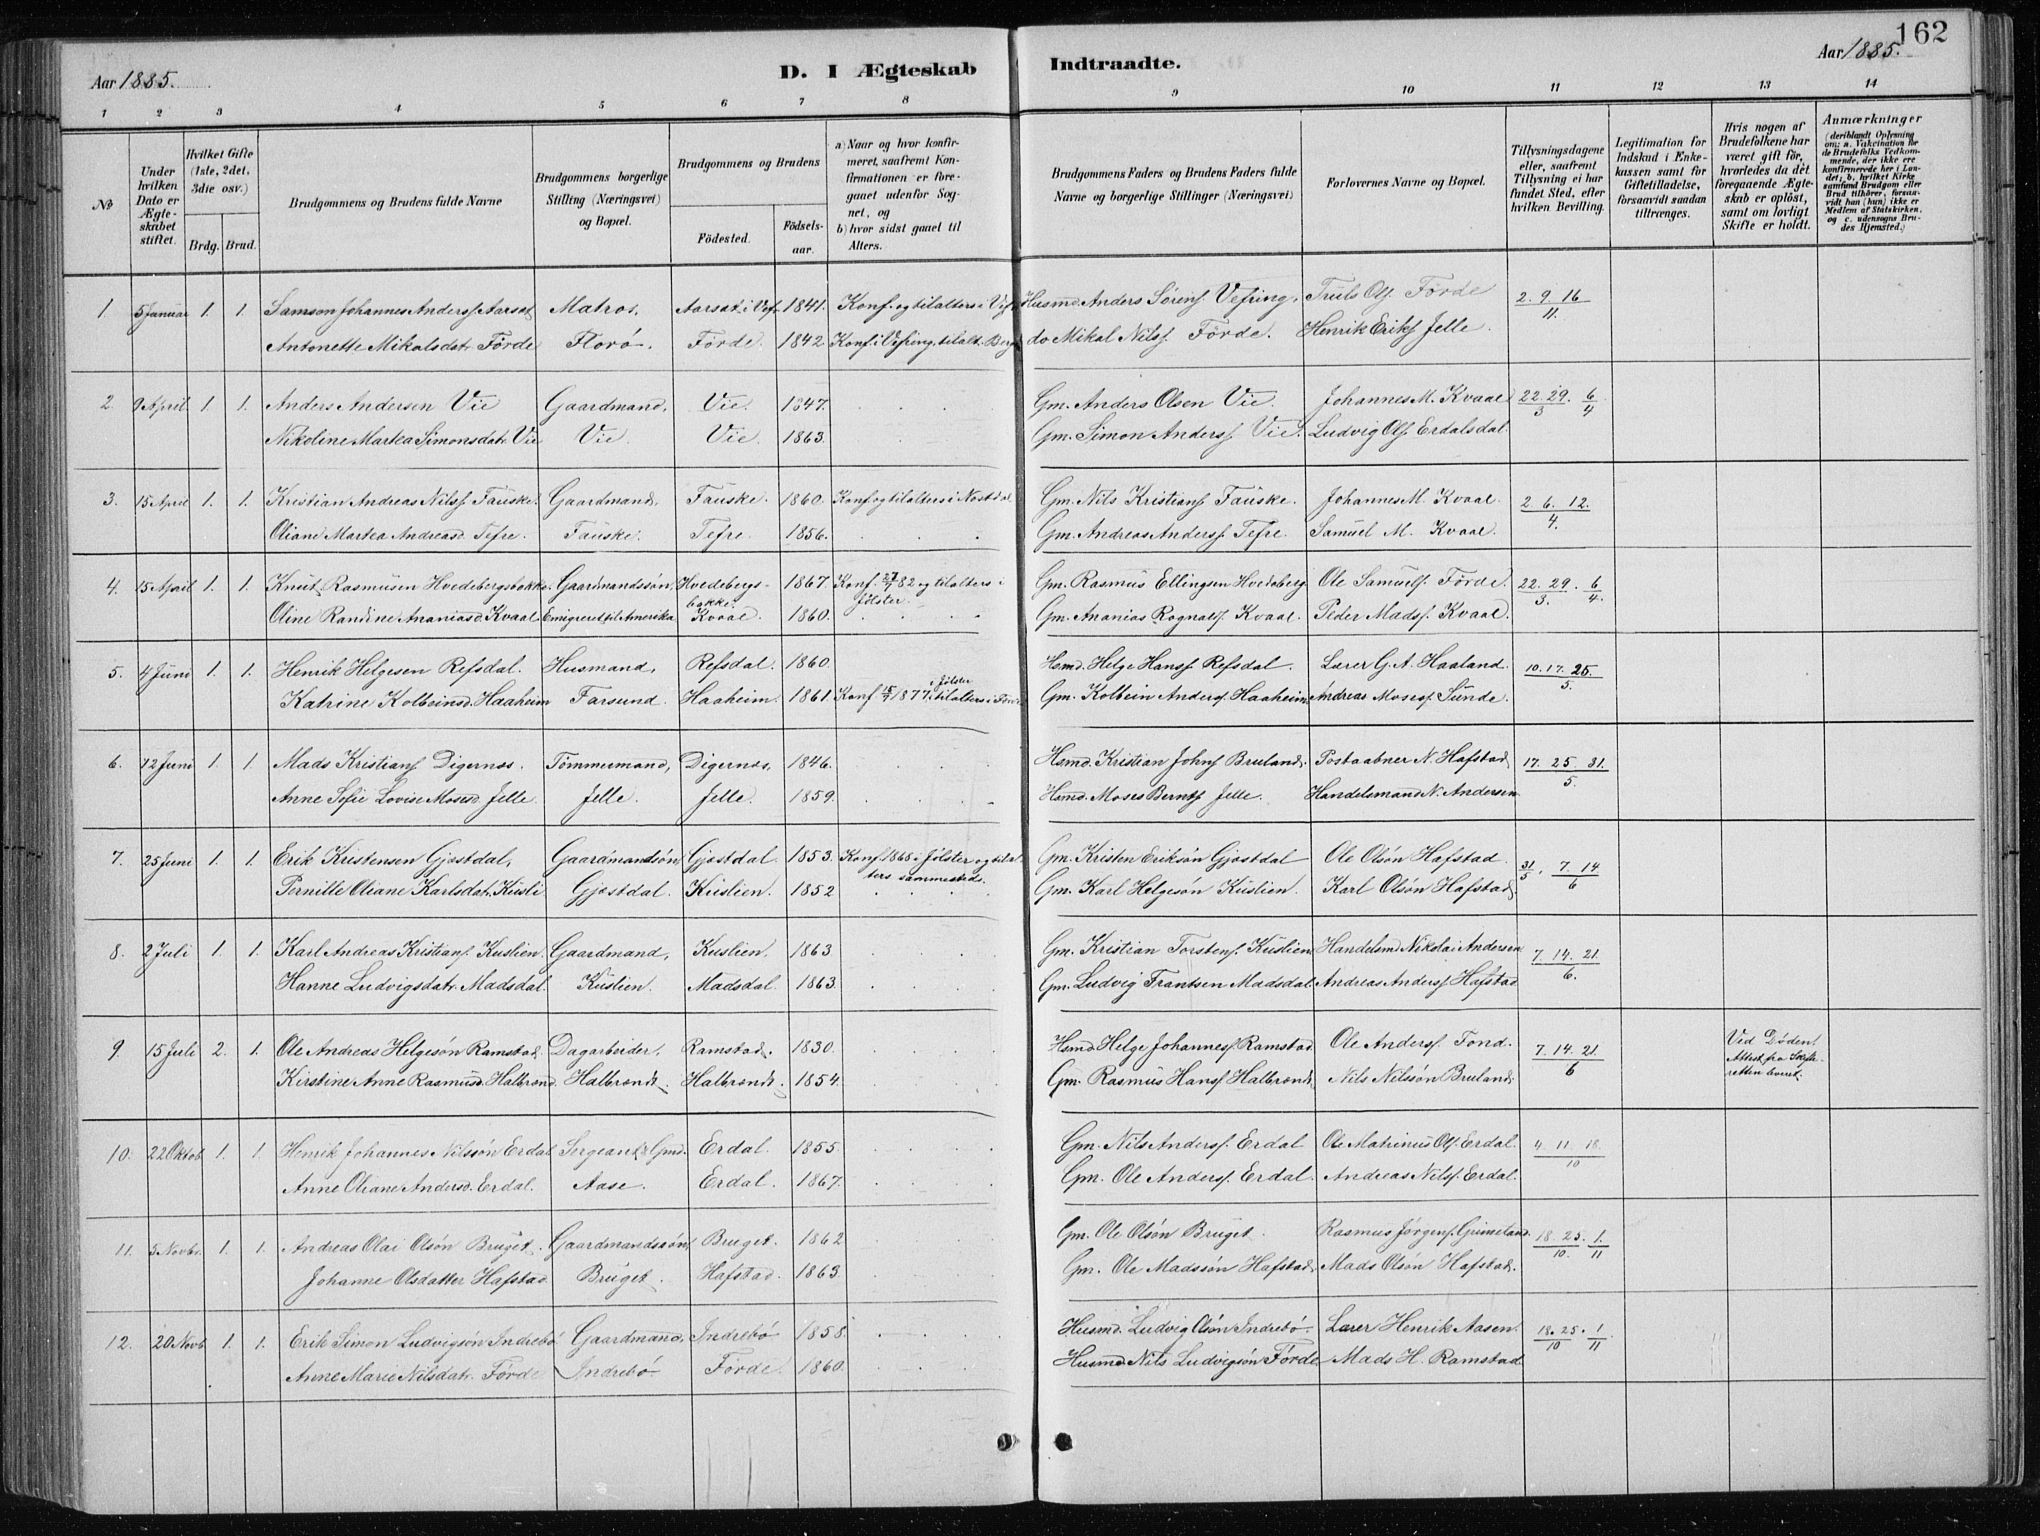 162
Aar 1885.
D. I Ægteskab Indtraadte.
Aar 1885.
1 2 3 4 5 6 7 8 9 10 11 12 13 14
No
Under hvilken Dato er Ægteskabet stiftet.
Hvilket Gifte (1ste, 2det, 3die osv.)
Brdg. Brud.
Brudgommens og Brudens fulde Navne
Brudgommens borgerlige Stilling (Næringsvei) og Bopæl.
Brudgommens og Brudens
Födested. Födsels-aar.
a) Naar og hvor konfirmeret, saafremt Konfirmationen er foregaaet udenfor Sognet, og
b) hvor sidst gaaet til Alters.
Brudgommens Faders og Brudens Faders fulde Navne og borgerlige Stillinger (Næringsvei)
Forlovernes Navne og Bopæl.
Tillysningsdagene eller, saafremt Tillysning ei har fundet Sted, efter hvilken Bevilling.
Legitimation for Indskud i Enkekassen samt for Giftetilladelse, forsaavidt saadan tiltrænges.
Hvis nogen af Brudefolkene har været gift för, hvorledes da det foregaaende Ægteskab er oplöst, samt om lovligt Skifte er holdt.
Anmærkninger
(deriblandt Oplysning om: a. Vakcination for de Brudefolks Vedkommende, der ikke ere konfirmerede her i Landet; b. hvilket Kirkesamfund Brudgom eller Brud tilhörer, forsaavidt han (hun) ikke er Medlem af Statskirken, og c. udensogns Brudes Hjemsted.)
1. 5 Januar 1. 1. Samson Johannes Anderss Aarsat Matros, Aarsat i Vefr. 1841. Konf. og tilalters i Vefr. Husmd. Anders Sörens. Vefring. Truls Ols. Förde 2. 9. 16
11.
Antonette Mikalsdat. Förde Florö. Förde. 1842 Konf. i Vefring, tilalt. Berg. do Mikal Nilss. Förde. Henrik Eriks. Jelle.
2. 9 April 1. 1. Anders Andersen Vie Gaardmand, Vie. 1847. Gm. Anders Olsen Vie. Johannes M. Kvaal 22. 29. 6
3 4
Nikoline Martea Simonsdat. Vie Vie. Vie. 1863. Gm. Simon Anderss. Vie. Ludvig Ols. Erdalsdal.
3. 15 April 1. 1. Kristian Andreas Nilss. Fauske. Gaardmand, Fauske. 1860. Konf og tilalters i Nostdal. Gm. Nils Kristians. Fauske. Johannes M. Kvaal. 2. 6. 12.
4.
Oliane Martea Andreasd. Tefre. Fauske. Tefre. 1856. Gm. Andreas Anderss. Tefre. Samuel M. Kvaal.
4. 15 April 1. 1. Knut Rasmusen Hvedebergsbakke. Gaardmandssön, Hvedebergs-bakke. 1867. Konf. 27/82 og tilalters i Jölster. Gm. Rasmus Ellingsen Hvedeberg. Ole Samuels. Förde. 22. 29. 6
3. 4.
Oline Randine Ananiasd. Kvaal. Emigreret til Amerika Kvaal. 1860. Gm. Ananias Rognalds. Kvaal. Peder Madss. Kvaal.
5. 4 Juni 1. 1. Henrik Helgesen Refsdal. Husmand, Refsdal. 1860. Hsmd. Helge Hanss. Refsdal. Lærer G. A. Haaland. 10. 17. 25.
5.
Katrine Kolbeinsd. Haaheim Farsund. Haaheim. 1861. Konf. 1877 i Jölster, tilalters i Förde Gm. Kolbein Anderss. Haaheim. Andreas Moses. Sunde.
6. 12 Juni 1. 1. Mads Kristians. Digernæs. Tömmermand, Digernæs, 1846. Hsmd. Kristian Johns. Bruland. Postaabner N. Hafstad 17. 25. 31.
5.
Anne Sofie Lovise Mosesd. Jelle. Jelle. Jelle. 1859. Hsmd. Moses Bernts. Jelle. Handelsmand N. Andersen
7. 25 Juni 1. 1. Erik Kristensen Gjæstdal, Gaardmandsön Gjæstdal. 1853. Konf. 1868 i Jölster og tilalters sammesteds. Gm. Kristen Eriksön Gjæstdal Ole Olsön Hafstad. 31/5. 7. 14.
6
Pernille Oliane Karlsdat. Kusli Gjæstdal. Kuslien. 1852 Gm. Karl Helgesön Kuslien. Karl Olsön Hafstad.
8. 2 Juli 1. 1. Karl Andreas Kristians. Kuslien. Gaardmand, Kuslien. 1863 Gm. Kristian Torstens. Kuslien. Handelsmd Nikolai Andersen 7. 14. 21.
6.
Hanne Ludvigsdatr. Madsdal. Kuslien. Madsdal. 1863. Gm. Ludvig Frantsen Madsdal Andreas Anderss. Hafstad
9. 15 Juli 2. 1. Ole Andreas Helgesön Ramstad. Dagarbeider. Ramstad. 1830. Hsmd. Helge Johanness. Ramstad Ole Anderss. Fond. 7. 14. 21.
6
Ved Döden. Attest fra Skifteretten leveret.
Kirstine Anne Rasmusd. Halbrend. Halbrendt. Halbrendt. 1854. Gm. Rasmus Hans. Halbrendt. Nils Nilssön Bruland.
10. 22 Oktob 1. 1. Henrik Johannes Nilssön Erdal Sergeant & Gmd. Erdal. 1855. Gm. Nils Anderss. Erdal Ole Matinius Ols. Erdal. 4 11 18.
10
Anne Oliane Andersd. Erdal. Aase. Erdal. 1867. Gm. Ole Anderss. Erdal. Andreas Nilss. Erdal.
11. 5 Novbr. 1. 1. Andreas Olai Olsön Bruget. Gaardmandssön, Bruget. 1862 Gm. Ole Olsön Bruget. Rasmus Jörgens. Grimeland. 18. 25. 1
10. 11
Johanne Olsdatter Hafstad Bruget. Hafstad. 1863. Gm. Ole Madssön Hafstad. Mads Olsön Hafstad.
12. 20 Novb. 1. 1. Erik Simon Ludvigsön Indrebö Gaardmand, Indrebö 1858. Husmd. Ludvig Olsön Indrebö. Lærer Henrik Aasen. 18. 25. 1
10 11
Anne Marie Nilsdatr. Förde Indrebö Förde. 1860. Husmd. Nils Ludvigsön Förde. Mads H. Ramstad